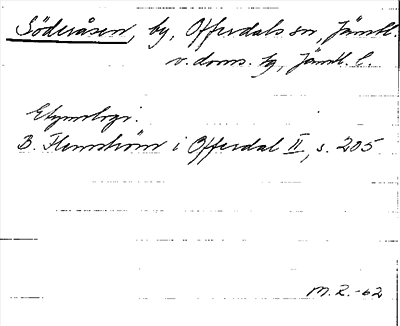 Söderåsen, by, Offerdals sn, Jämtl.
v. doms. tg, Jämtl. l.
Etymologi.
B. Flemström i Offerdal II, s. 205
M.R.-62